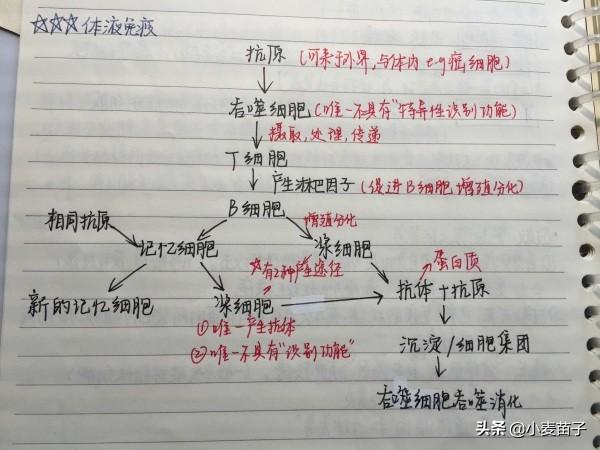 ☆☆☆体液免疫
抗原(可来于外界,与体内 e.g 癌细胞)
吞噬细胞(唯一不具有"特异性识别功能)
摄取,处理,传递
T细胞
产生淋巴因子(促进B细胞增殖分化)
B细胞
相同抗原
增殖分化
记忆细胞
浆细胞
☆有2种产生途径
蛋白质
新的记忆细胞
浆细胞
抗体+抗原
①唯一产生抗体
②唯一不具有"识别功能"
沉淀/细胞集团
吞噬细胞吞噬消化
头条@小麦苗子